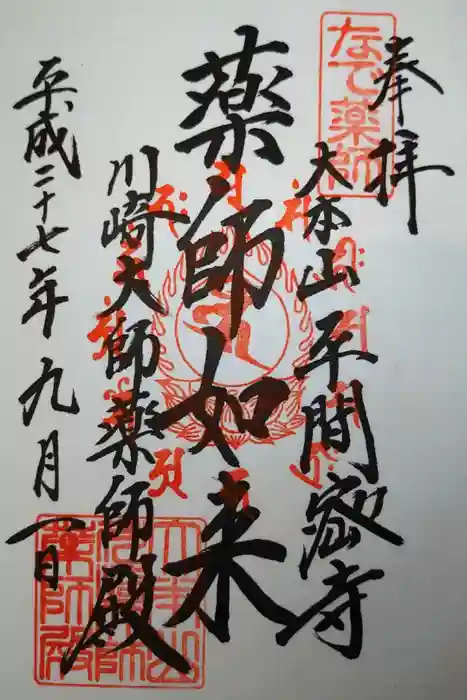 奉拝
なで薬師
大本山平間密寺
薬師如来
川崎大師薬師殿
平成二十七年九月一日